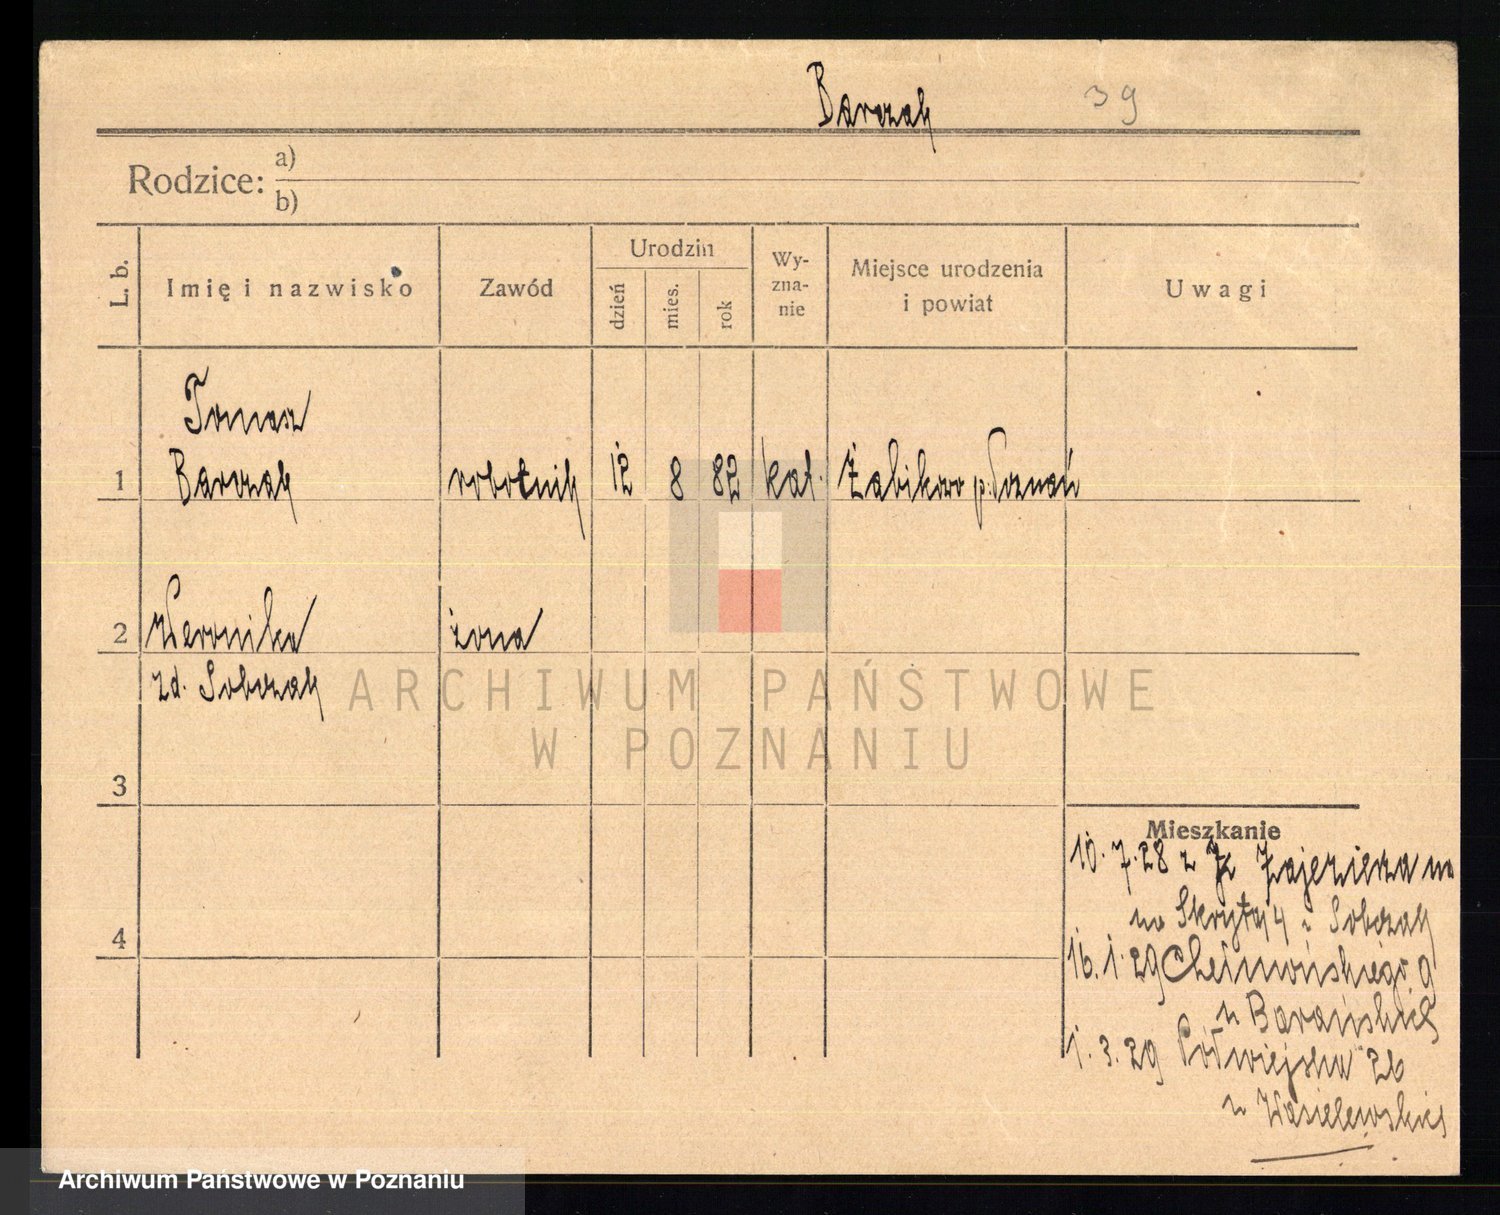 Barczak 39
Rodzice: a)
b)
L. b.
Imię i nazwisko
Zawód
Urodzin
dzień
mies.
rok
Wy-
zna-
nie
Miejsce urodzenia
i powiat
Uwagi
Tomasz
1 Barczak robotnik 12 8 82 kat. Żabikowo p. Poznań
2 Weronika żona
zd. Sobczak
ARCHIWUM PAŃSTWOWE
W POZNANIU
3
Mieszkanie
10.7.28 z Zajezierza
na Skrytą 4 Sobczak
4
16.1.29 Chełmońskiego 9
u Barańskich
1.3.29 Półwiejska 26
u Wasielewskich
Archiwum Państwowe w Poznaniu